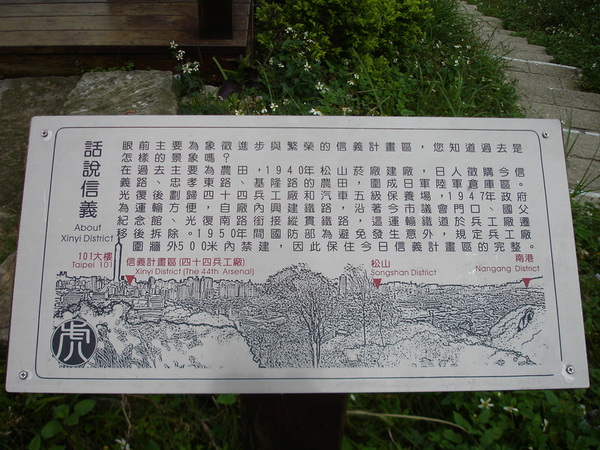 話說信義
About
Xinyi District
眼前主要為象徵進步與繁榮的信義計畫區，您知道過去是
怎樣的景象嗎？
在過去主要為農田，1940年松山菸廠建廠，日人徵購今信
義路、忠孝東路、基隆路的農田，圍成日軍陸軍倉庫區。
光復後劃歸四十四兵工廠和汽車五級保養場，1947年政府
為運輸方便，自廠內興建鐵路，沿著今市議會門口、國父
紀念館、光復南路銜接縱貫鐵路，這運輸鐵道於兵工廠遷
移後拆除。1950年間國防部為避免發生意外，規定兵工廠
圍牆外500米內禁建，因此保住今日信義計畫區的完整。
101大樓
Taipei 101
信義計畫區(四十四兵工廠)
Xinyi District (The 44th Arsenal)
松山
Songshan District
南港
Nangang District
虎